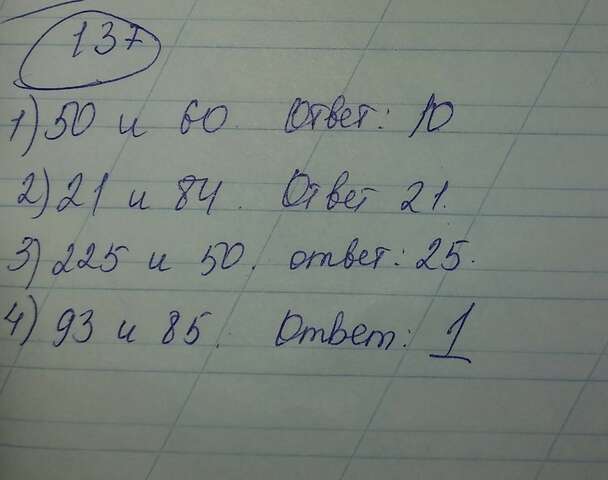 137
1) 50 и 60. Ответ: 10
2) 21 и 84. Ответ 21.
3) 225 и 50. ответ: 25.
4) 93 и 85. Ответ: 1